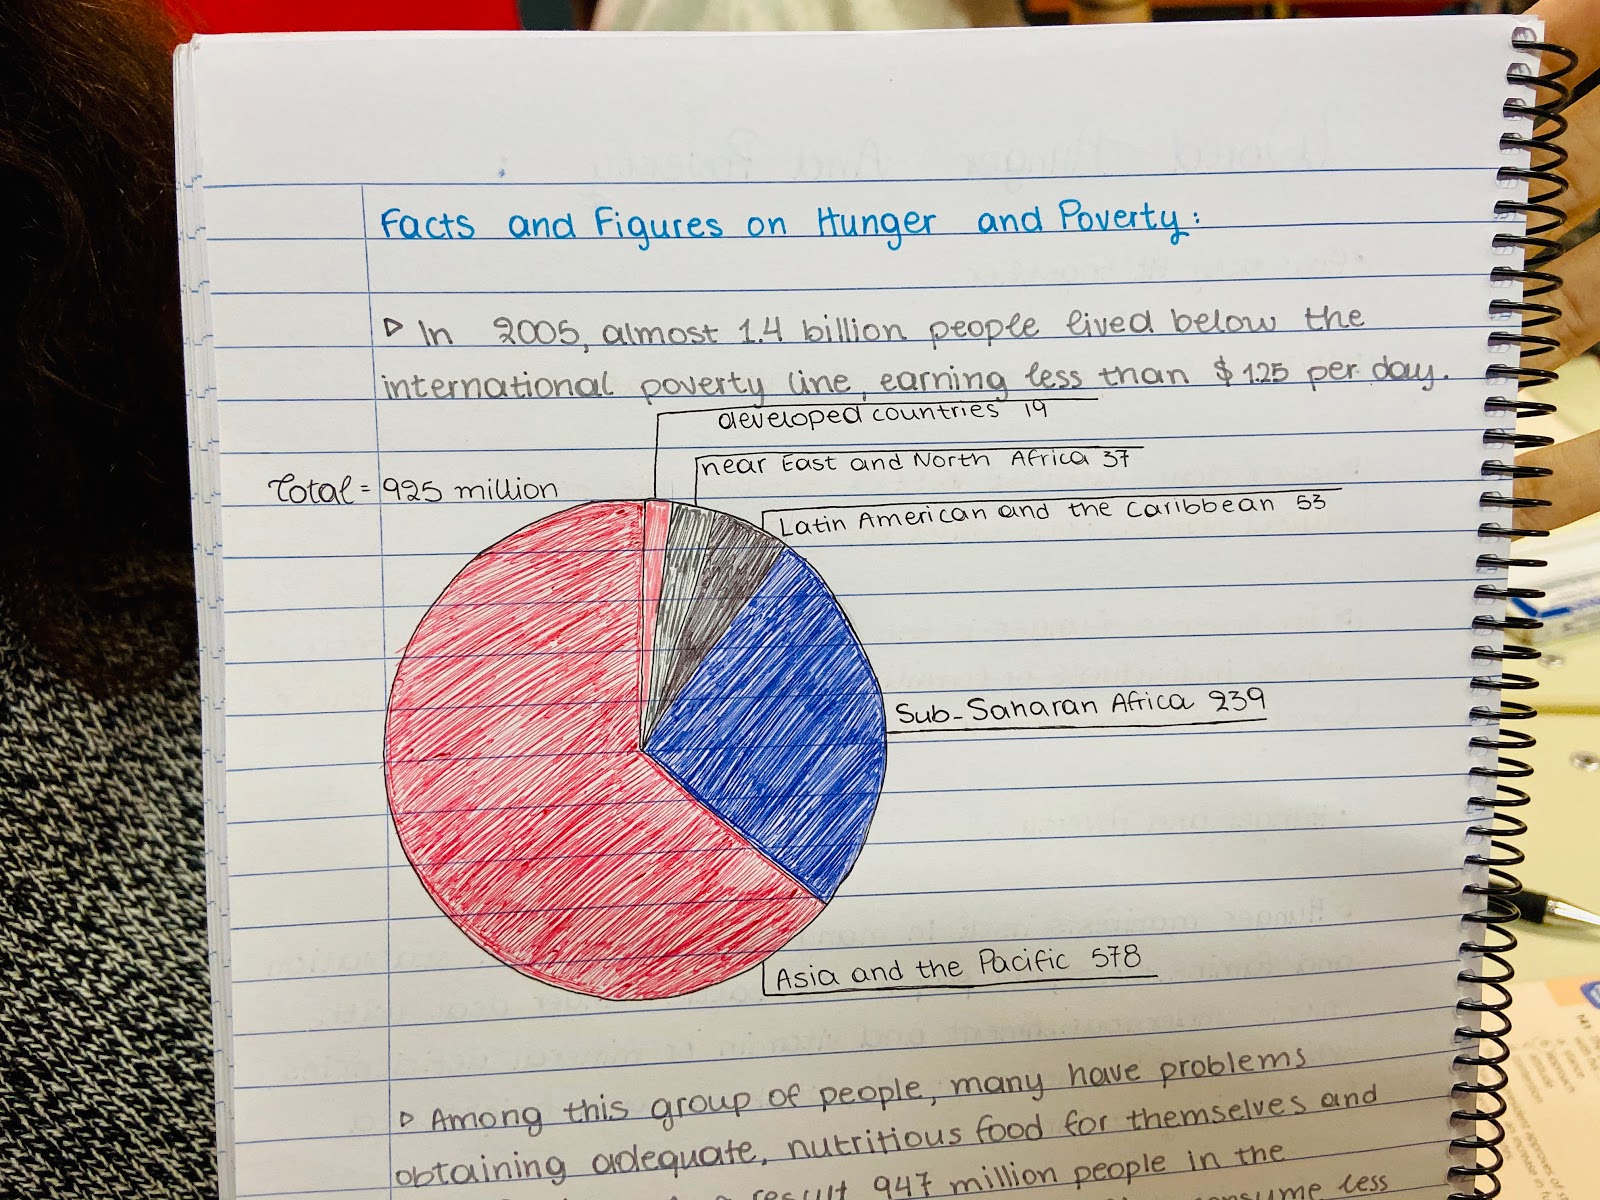 Facts and Figures on Hunger and Poverty:
▷ In 2005, almost 1.4 billion people lived below the
international poverty line, earning less than $1.25 per day.
developed countries 19
near East and North Africa 37
Total = 925 million
Latin American and the Caribbean 53
Sub-Saharan Africa 239
Asia and the Pacific 578
▷ Among this group of people, many have problems
obtaining adequate, nutritious food for themselves and
result 947 million people in the
consume less